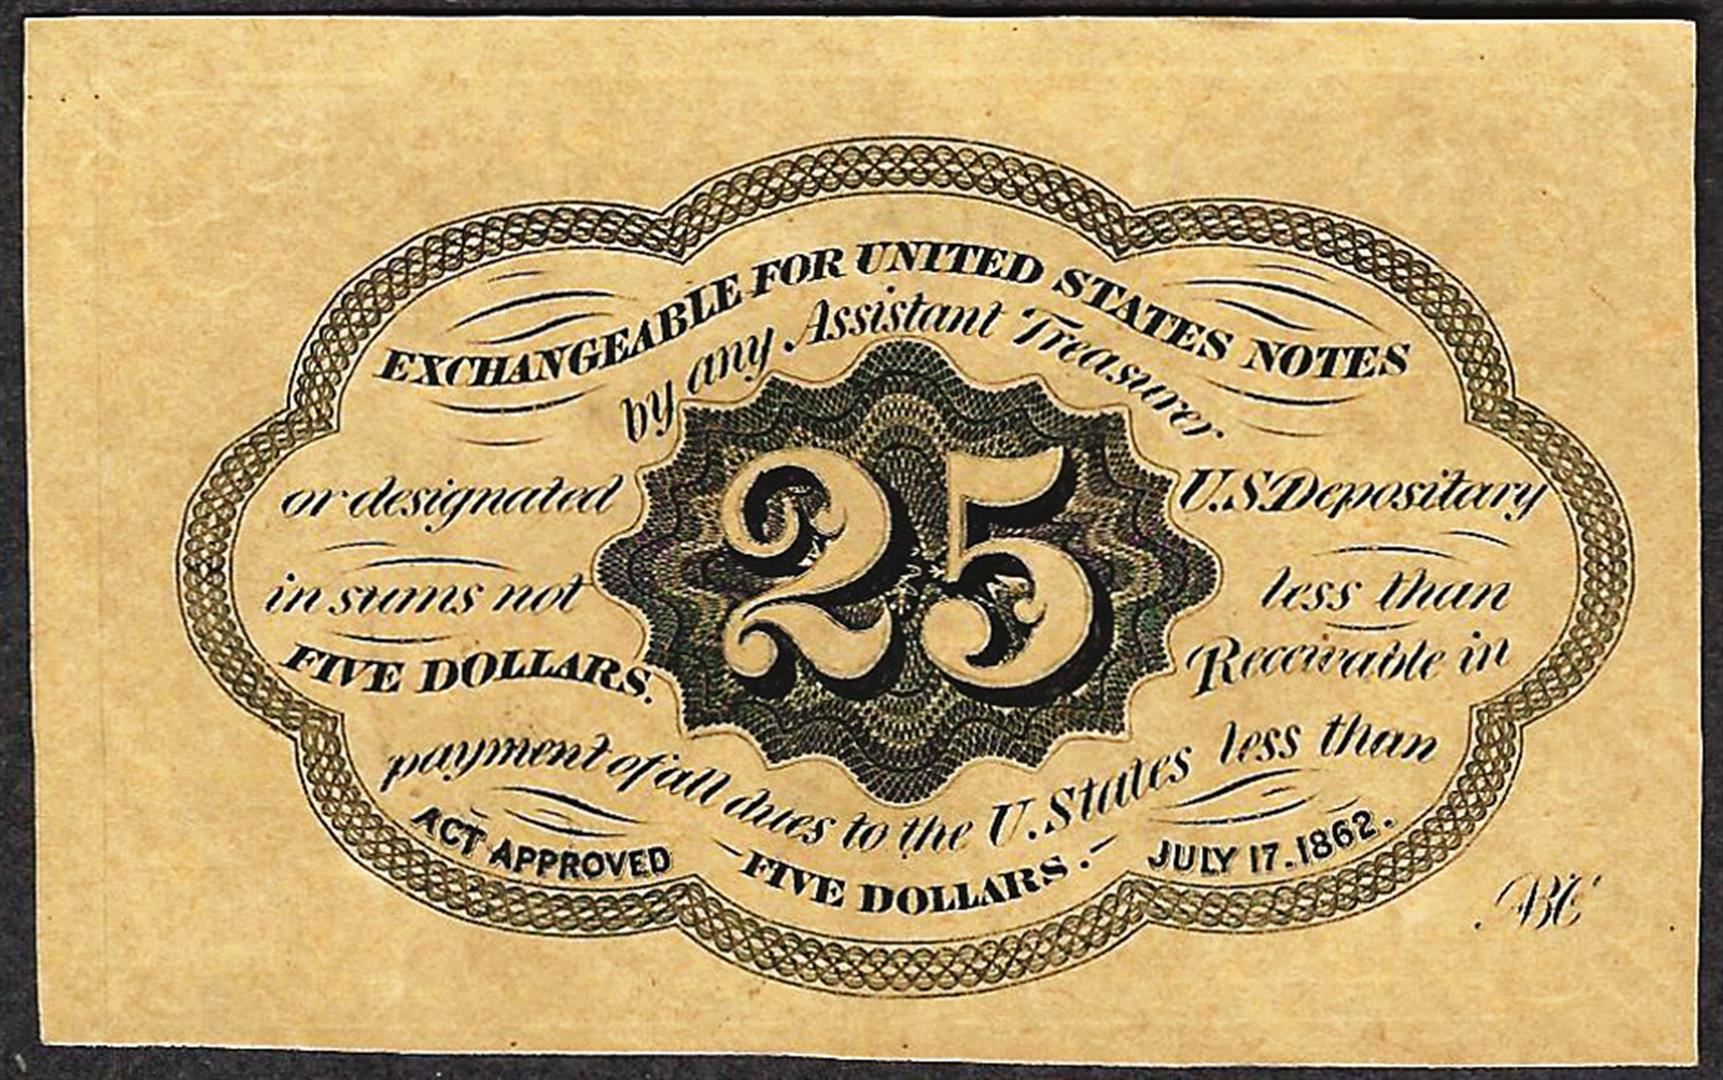 EXCHANGEABLE FOR UNITED STATES NOTES
by any Assistant Treasurer
or designated U.S. Depositary
in sums not less than
FIVE DOLLARS. Receivable in
payment of all dues to the U. States less than
ACT APPROVED —FIVE DOLLARS.— JULY 17. 1862.
25
ABC